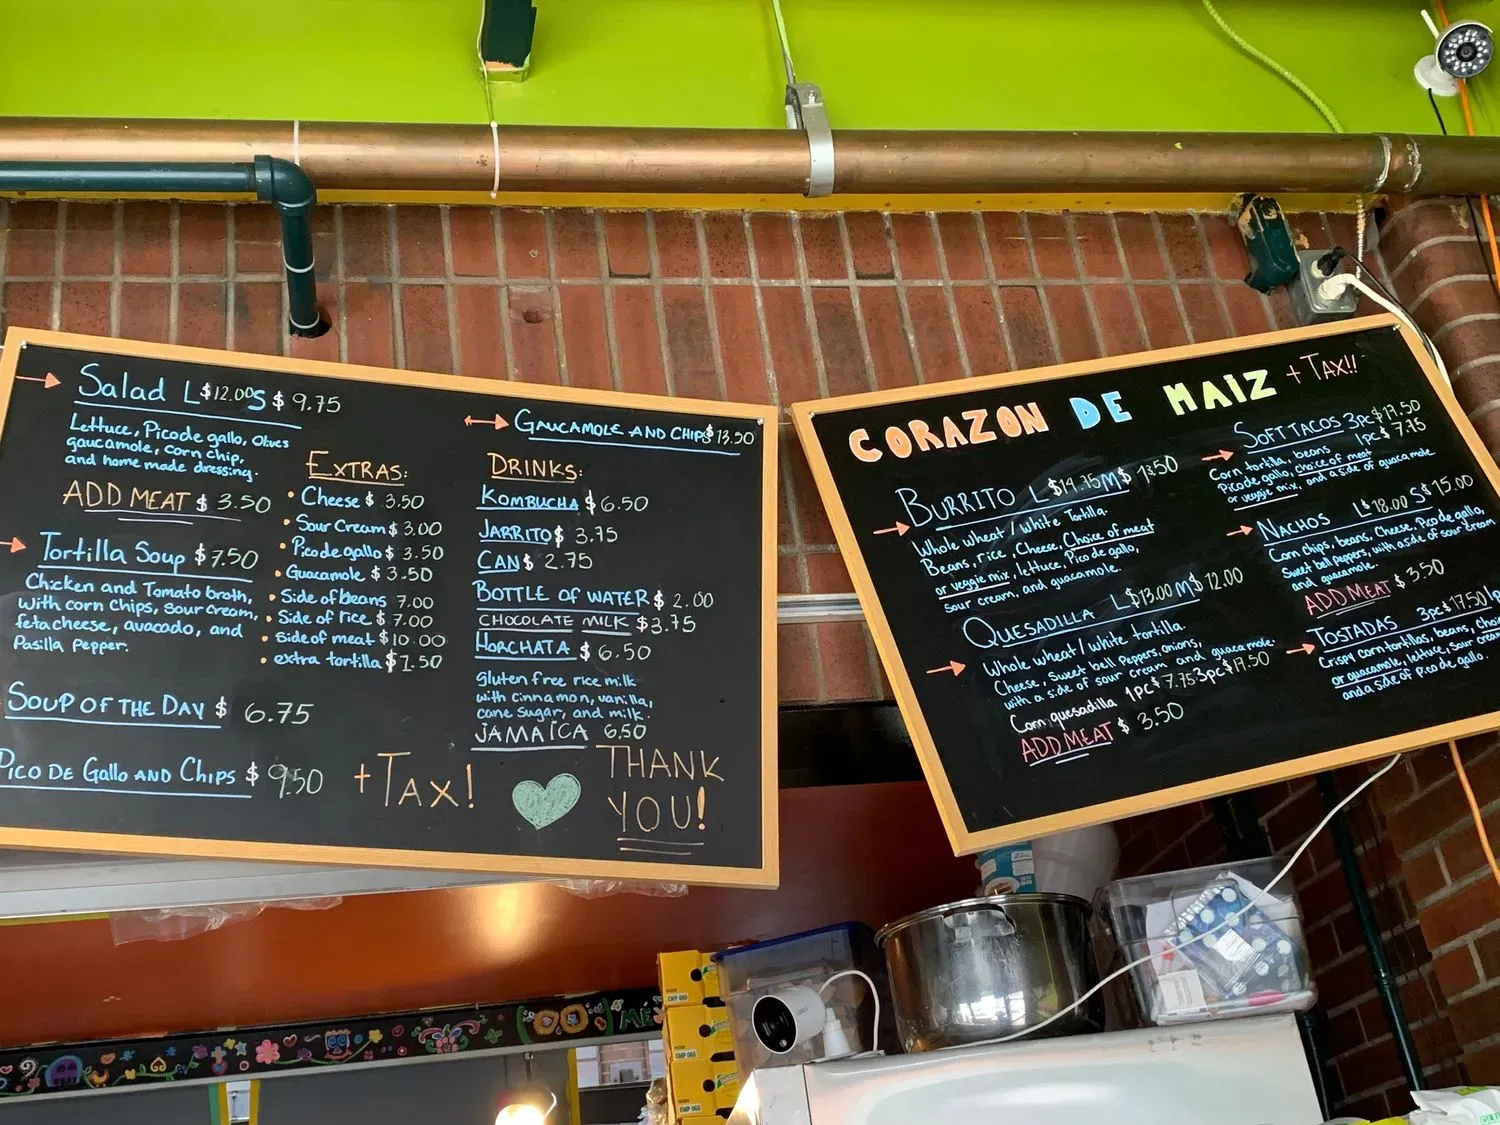 Salad L $12.00 S $ 9.75
Lettuce, Picode gallo, Olives
guacamole, corn chip,
and home made dressing.
ADD MEAT $ 3.50
Tortilla Soup $7.50
Chicken and Tomato broth,
with corn chips, sour cream,
feta cheese, avocado, and
Pasilla Pepper.
SOUP OF THE DAY $ 6.75
PICO DE GALLO AND CHIPS $ 9.50
+ TAX!
EXTRAS:
Cheese $ 3.50
Sour Cream $ 3.00
Picode gallo $ 3.50
Guacamole $ 3.50
Side of beans 7.00
Side of rice $ 7.00
Side of meat $10.00
extra tortilla $1.50
GAUCAMOLE AND CHIPS $ 13.50
DRINKS:
KOMBUCHA $6.50
JARRITO $ 3.75
CAN $ 2.75
BOTTLE OF WATER $ 2.00
CHOCOLATE MILK $3.75
HORCHATA $ 6.50
gluten free rice milk
with cinnamon, vanilla,
cane sugar, and milk.
JAMAICA 6.50
THANK
YOU!
CORAZON DE MAIZ + TAX!!
BURRITO L $14.75 M $ 13.50
Whole wheat / white Tortilla.
Beans, rice, Cheese, Choice of meat
or veggie mix, lettuce, Pico de gallo,
sour cream, and guacamole.
QUESADILLA L $13.00 M $ 12.00
Whole wheat / white tortilla.
Cheese, sweet bell peppers, onions,
with a side of sour cream and guacamole.
Corn quesadilla 1pc $ 7.75 3pc $19.50
ADD MEAT $ 3.50
SOFT TACOS 3pc $19.50
1pc $ 7.75
Corn tortilla, beans
Picode gallo, choice of meat
or veggie mix, and a side of guacamole
NACHOS L $18.00 S $15.00
Corn chips, beans, Cheese, Picode gallo,
Sweet bell peppers, with a side of sour cream
and guacamole.
ADD MEAT $ 3.50
TOSTADAS 3pc $17.50
Crispy corn tortillas, beans,
or guacamole, lettuce, sour cream
and a side of Pico de gallo.
EMP 060
EMP 060
EMP 060